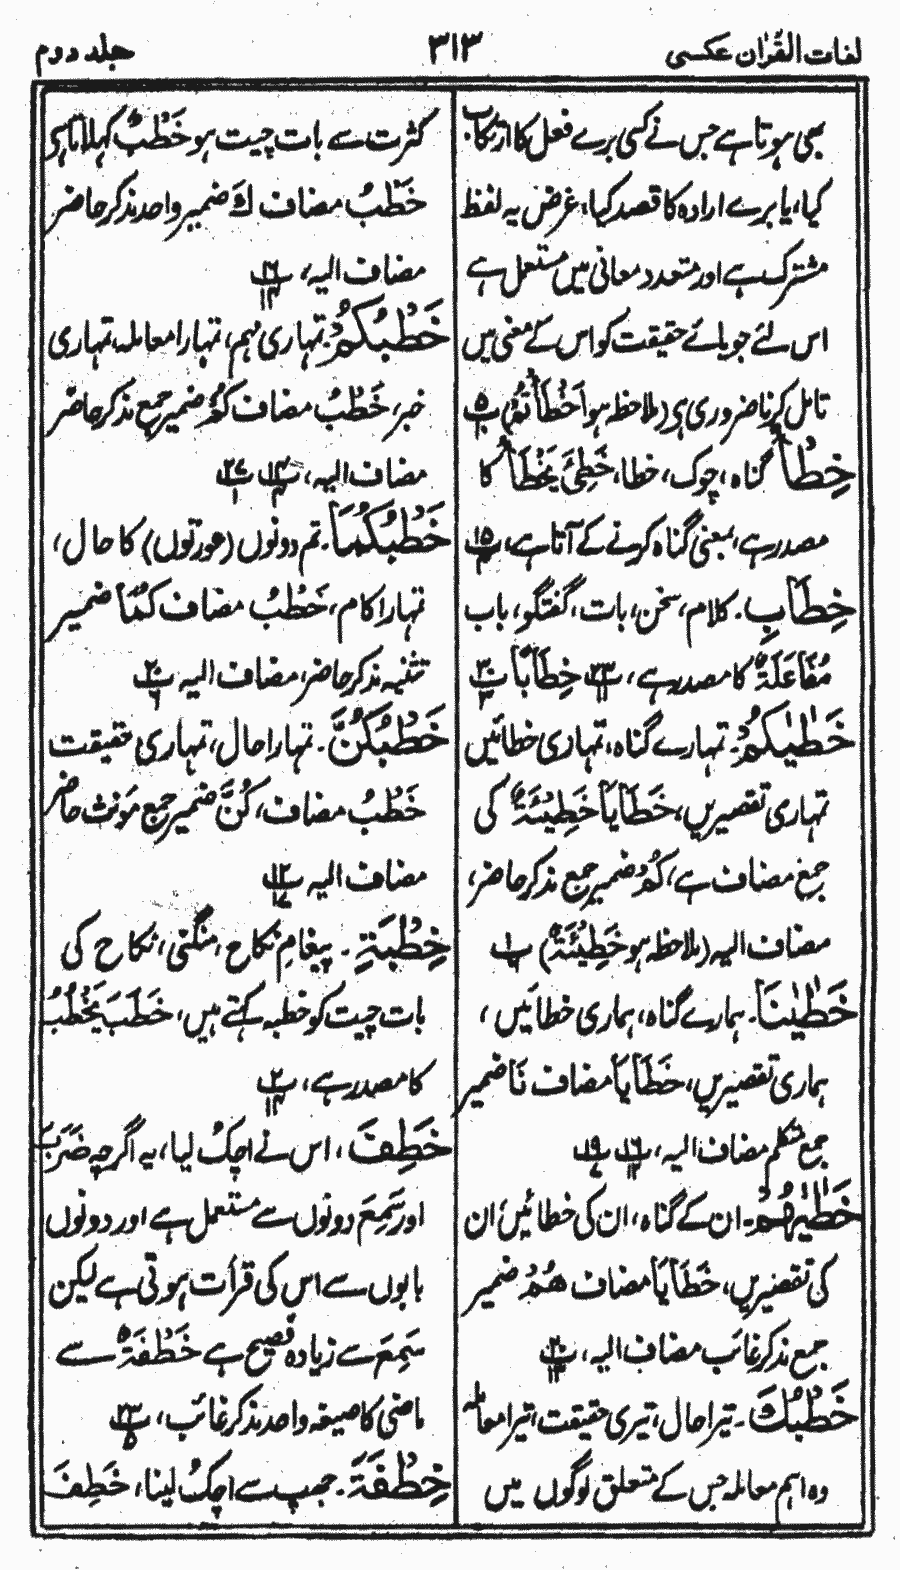 لغات القرٰان عکسی
۳۱۳
جلد دوم
بھی ہوتا ہے جس نے کسی برے فعل کا ارتکاب
کیا، یا برے ارادہ کا قصد کیا، غرض یہ لفظ
مشترک ہے اور متعدد معانی میں مستعمل ہے
اس لئے جویائے حقیقت کو اس کے معنی میں
تامل کرنا ضروری ہے (ملاحظہ ہو اَخْطَأْتُمْ) پ
خِطْأً گناہ، چوک، خطا، خَطِئَ یَخْطَأُ کا
مصدر ہے، بمعنی گناہ کرنے کے آتا ہے، پ ۱۵
خِطَابِ۔ کلام، سخن، بات، گفتگو، باب
مُفَاعَلَۃٌ کا مصدر ہے، پ ۲۳ ۱۱ خِطَابًا پ ۳۰
خَطٰیٰکُمْ۔ تمہارے گناہ، تمہاری خطائیں
تمہاری تقصیریں، خَطَایَا خَطِیْئَۃٌ کی
جمع مضاف ہے، کُمْ ضمیر جمع مذکر حاضر،
مضاف الیہ (ملاحظہ ہو خَطِیْئَۃٌ) پ
خَطٰیٰنَا۔ ہمارے گناہ، ہماری خطائیں،
ہماری تقصیریں، خَطَایَا مضاف نَا ضمیر
جمع متکلم مضاف الیہ، پ ۱۶ ۱۲ پ ۱۹
خَطٰیٰھُمْ۔ ان کے گناہ، ان کی خطائیں ان
کی تقصیریں، خَطَایَا مضاف ھُمْ ضمیر
جمع مذکر غائب مضاف الیہ، پ ۲۰
خَطْبُکَ۔ تیرا حال، تیری حقیقت، تیرا معاملہ
وہ اہم معاملہ جس کے متعلق لوگوں میں
کثرت سے بات چیت ہو خَطْبٌ کہلاتا ہے
خَطْبُ مضاف كَ ضمیر واحد مذکر حاضر
مضاف الیہ، پ ۱۶ ۱۴
خَطْبُکُمْ۔ تمہاری مہم، تمہارا معاملہ، تمہاری
خبر، خَطْبُ مضاف کُمْ ضمیر جمع مذکر حاضر
مضاف الیہ، پ ۱۴ پ ۲۷ ۱
خَطْبُکُمَا۔ تم دونوں (عورتوں) کا حال،
تمہارا کام، خَطْبُ مضاف کُمَا ضمیر
تثنیہ مذکر حاضر، مضاف الیہ پ ۲۰ ۶
خَطْبُکُنَّ۔ تمہارا حال، تمہاری حقیقت
خَطْبُ مضاف، کُنَّ ضمیر جمع مؤنث حاضر
مضاف الیہ پ ۱۲
خِطْبَۃِ۔ پیغامِ نکاح، منگنی، نکاح کی
بات چیت کو خطبہ کہتے ہیں، خَطَبَ یَخْطُبُ
کا مصدر ہے، پ ۲ ۱۴
خَطِفَ، اس نے اچک لیا، یہ اگرچہ ضَرَبَ
اور سَمِعَ دونوں سے مستعمل ہے اور دونوں
بابوں سے اس کی قرأت ہوتی ہے لیکن
سَمِعَ سے زیادہ فصیح ہے خَطْفَۃٌ سے
ماضی کا صیغہ واحد مذکر غائب، پ ۲۳ ۵
خَطْفَۃَ۔ جھپ سے اچک لینا، خَطِفَ